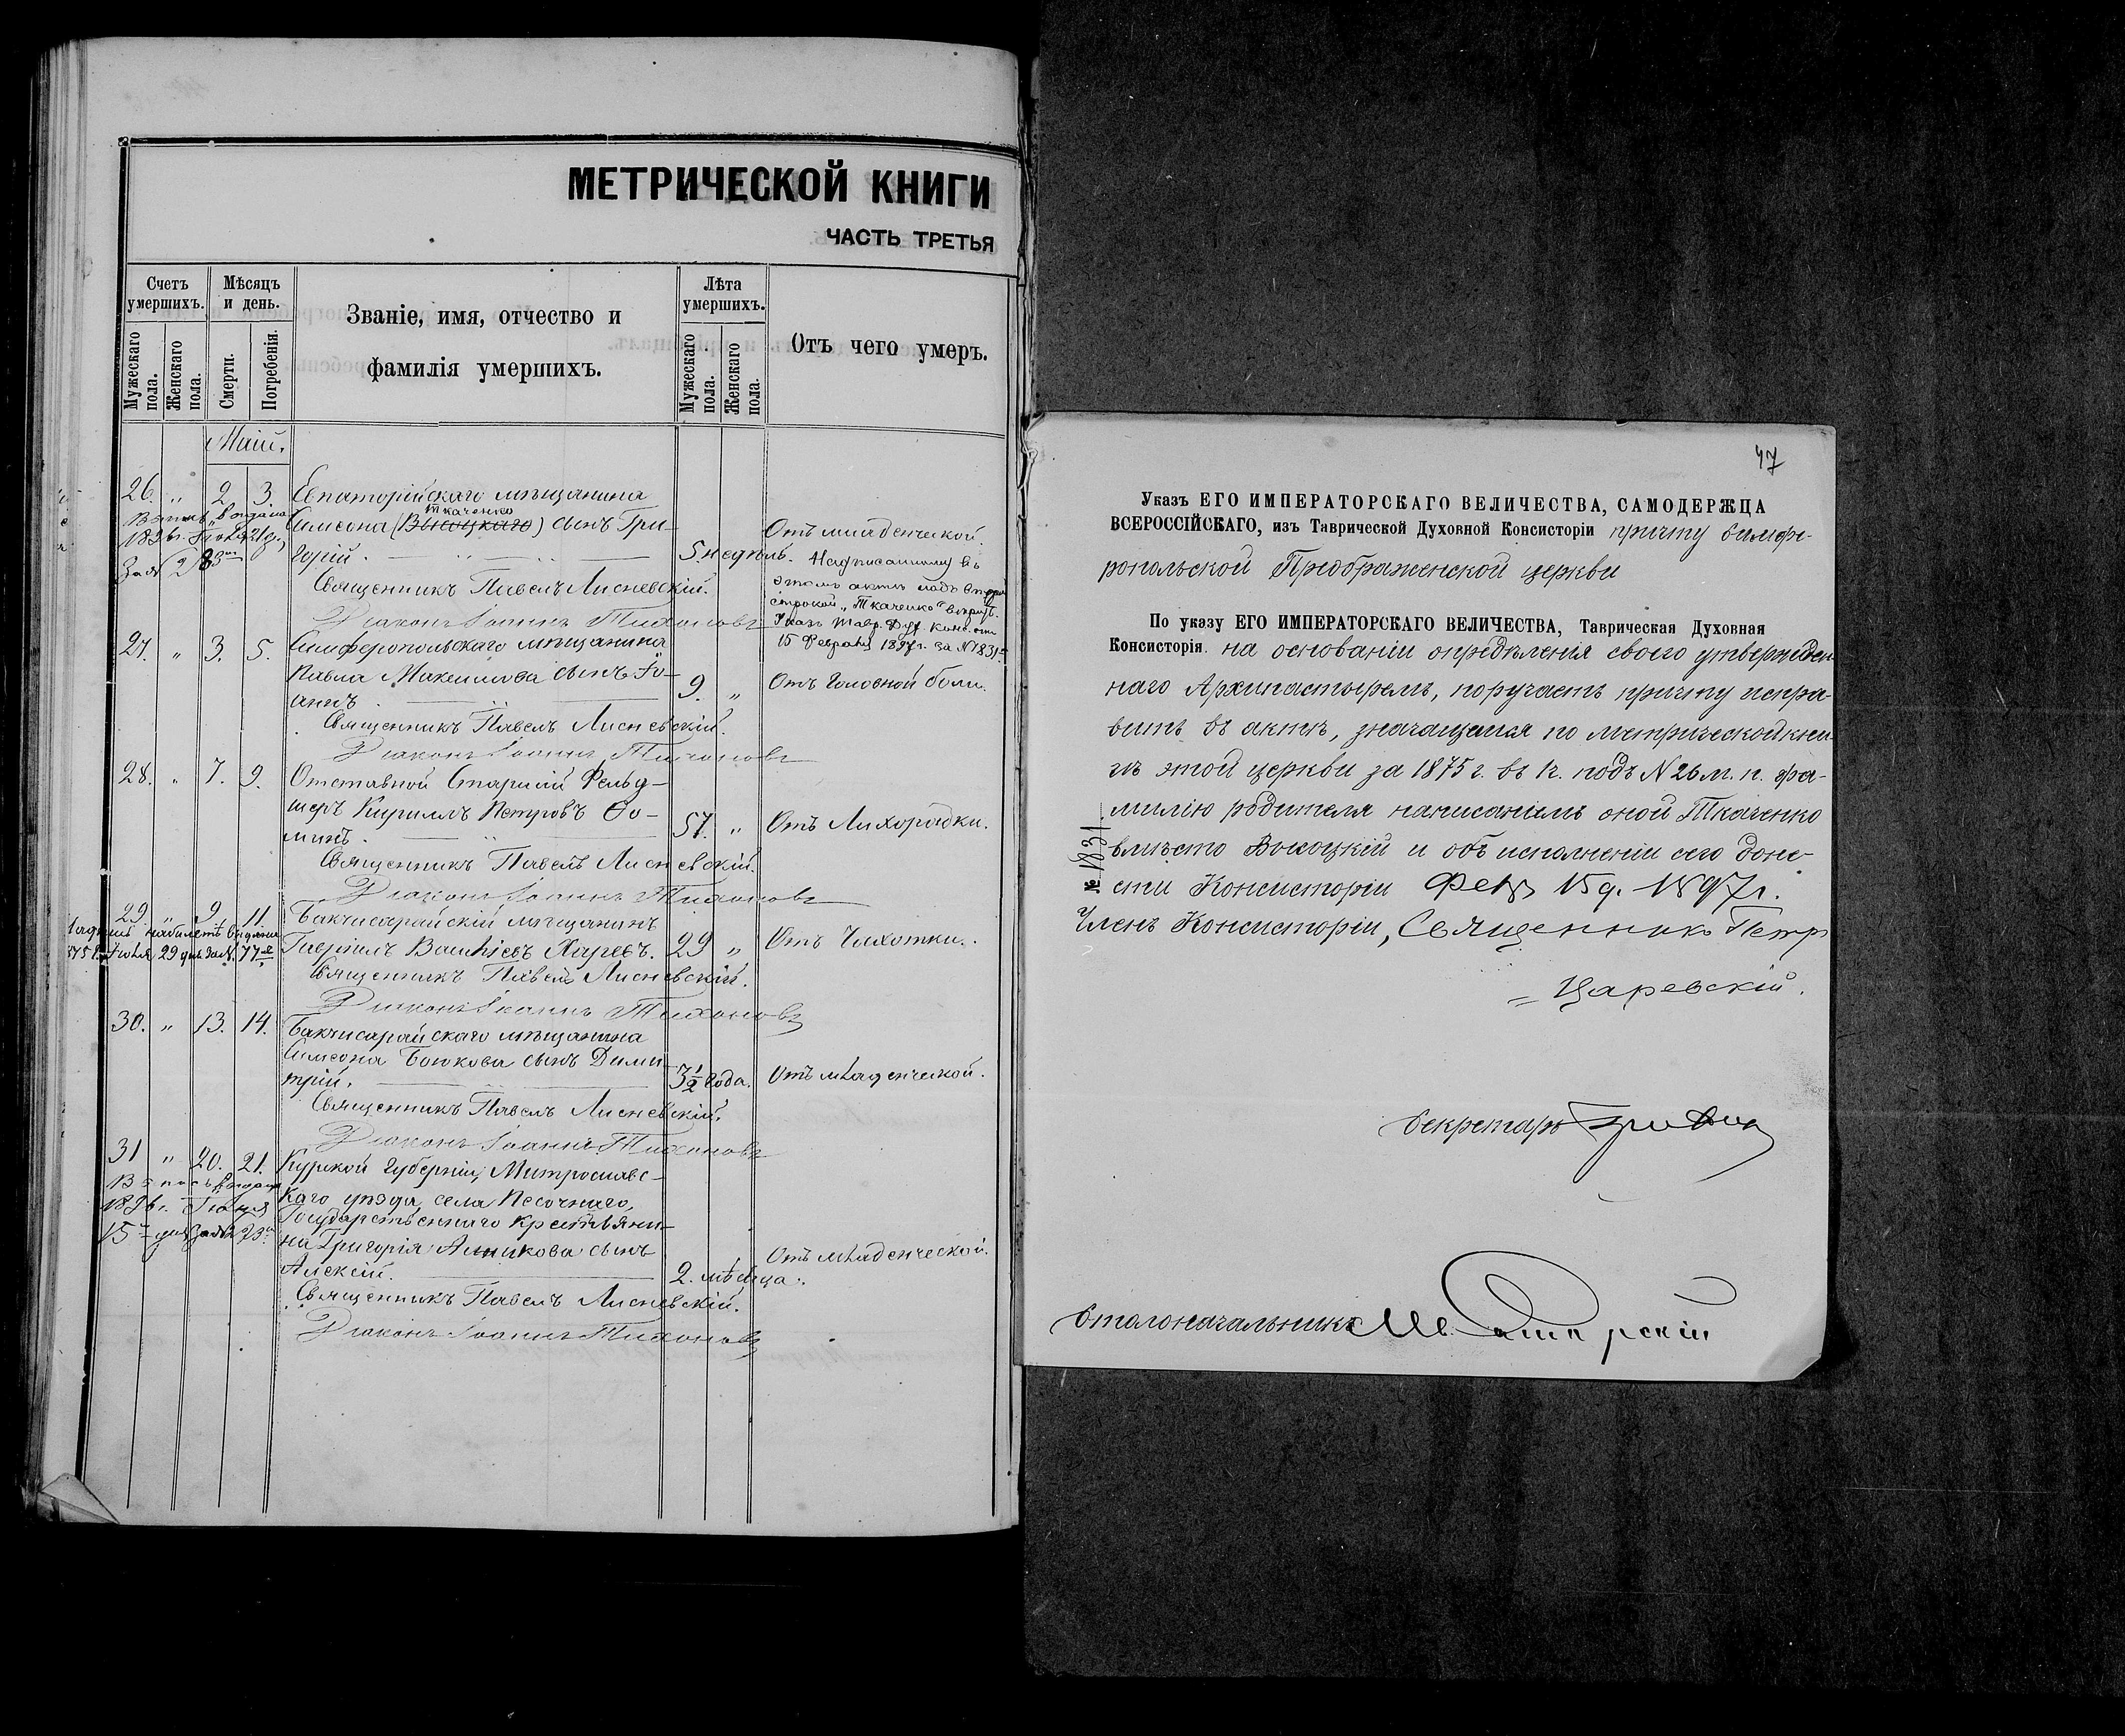 МЕТРИЧЕСКОЙ КНИГИ
ЧАСТЬ ТРЕТЬЯ
Счетъ умершихъ.
Мужескаго пола.
Женскаго пола.
Мѣсяцъ и день.
Смерти.
Погребенія.
Званіе, имя, отчество и
фамилія умершихъ.
Лѣта умершихъ.
Мужескаго пола.
Женскаго пола.
Отъ чего умеръ.
Маій.
26. „ 2 3 Евпаторійскаго мѣщанина
Ткаченко
Симеона (Высоцкаго) сынъ Гри-
горій. 5. недѣль. Отъ младенческой.
1896г.
за № 283
Надписанному въ
этомъ актѣ надъ второй
строкой „Ткаченко" вѣрить.
Указъ Тавр. Дух. Конс. отъ
15 Февраля 1897г. за № 1831
Священникъ Павелъ Лисневскій.
Діаконъ Іоаннъ Тихоновъ
27. „ 3. 5. Симферопольскаго мѣщанина
Павла Максимова сынъ Іо-
аннъ. 9. „ Отъ Головной боли.
Священникъ Павелъ Лисневскій.
Діаконъ Іоаннъ Тихоновъ
28. „ 7. 9. Отставной Старшій Фельд-
шеръ Кириллъ Петровъ Ѳо-
минъ. 57. „ Отъ Лихорадки.
Священникъ Павелъ Лисневскій.
Діаконъ Іоаннъ Тихоновъ
29 „ 9 11. Бакчисарайскій мѣщанинъ
Гавріилъ 29 „ Отъ Чахотки.
Іюля 29 дня за №. 77
Священникъ Павелъ Лисневскій.
Діаконъ Іоаннъ Тихоновъ
30. „ 13. 14. Бакчисарайскаго мѣщанина
Симеона Боюкова сынъ Дими-
трій. 3½ года. Отъ младенческой.
Священникъ Павелъ Лисневскій.
Діаконъ Іоаннъ Тихоновъ
31 „ 20. 21. Курской Губерніи, Митрославс-
каго уѣзда, села Песочнаго,
Государственнаго крестьяни-
на Григорія сынъ
Алексій. 2. мѣсяца. Отъ младенческой.
1896г. Іюня
15 дня за №
Священникъ Павелъ Лисневскій.
Діаконъ Іоаннъ Тихоновъ
47
Указъ ЕГО ИМПЕРАТОРСКАГО ВЕЛИЧЕСТВА, САМОДЕРЖЦА
ВСЕРОССІЙСКАГО, изъ Таврической Духовной Консисторіи причту Симфе-
ропольской Преображенской церкви
По указу ЕГО ИМПЕРАТОРСКАГО ВЕЛИЧЕСТВА, Таврическая Духовная
Консисторія на основаніи опредѣленія своего утвержден-
наго Архипастыремъ, поручаетъ причту испра-
вить въ актѣ, значащемся по метрической кни-
гѣ этой церкви за 1875 г. въ 1 ч. подъ № 26 м. п. фа-
милію родителя написаніемъ оной Ткаченко
вмѣсто Высоцкій и объ исполненіи сего доне-
сти Консисторіи Февр 15 д. 1897 г.
№ 1831
Членъ Консисторіи, Священникъ Петръ
Царевскій.
Секретарь
Столоначальникъ